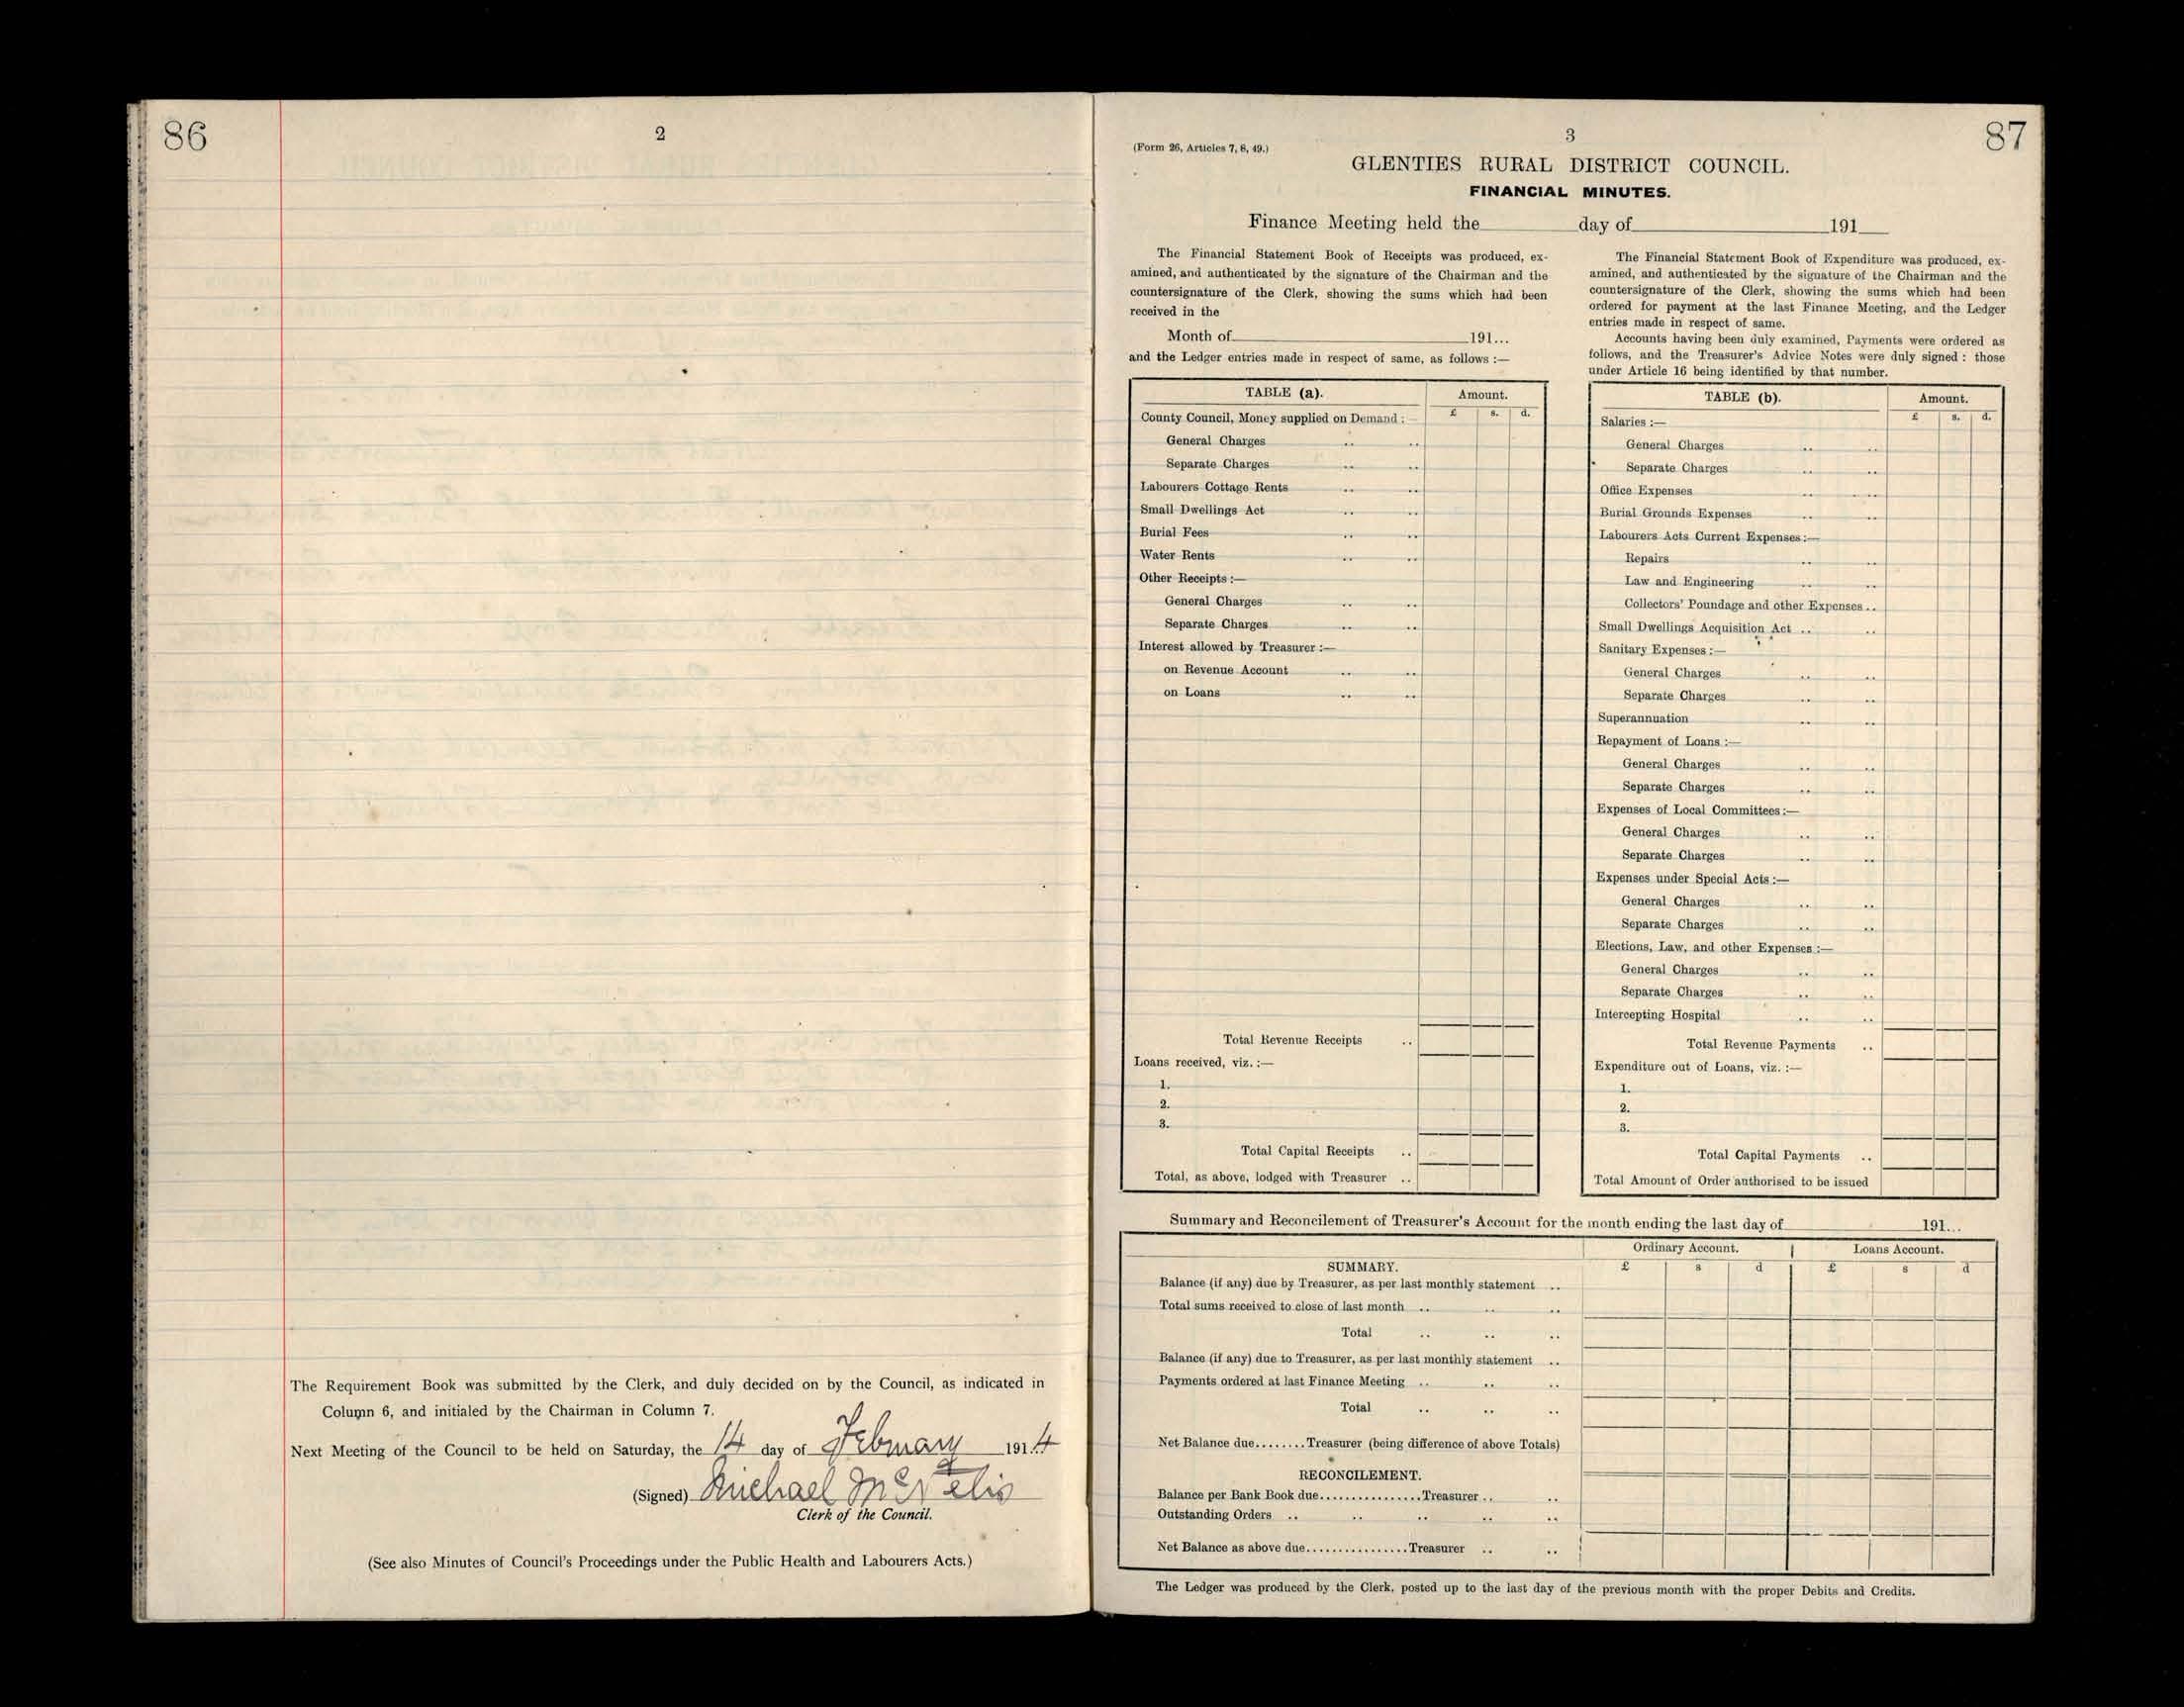 86
2
The Requirement Book was submitted by the Clerk, and duly decided on by the Council, as indicated in
Column 6, and initialed by the Chairman in Column 7.
Next Meeting of the Council to be held on Saturday, the 14 day of February 1914
(Signed) Michael McNelis
Clerk of the Council.
(See also Minutes of Council's Proceedings under the Public Health and Labourers Acts.)
3
87
(Form 26, Articles 7, 8, 49.)
GLENTIES RURAL DISTRICT COUNCIL.
FINANCIAL MINUTES.
Finance Meeting held the day of 191
The Financial Statement Book of Receipts was produced, ex-
amined, and authenticated by the signature of the Chairman and the
countersignature of the Clerk, showing the sums which had been
received in the
Month of 191...
and the Ledger entries made in respect of same, as follows :—
TABLE (a). Amount.
£ s. d.
County Council, Money supplied on Demand :—
General Charges .. ..
Separate Charges .. ..
Labourers Cottage Rents .. ..
Small Dwellings Act .. ..
Burial Fees .. ..
Water Rents .. ..
Other Receipts :—
General Charges .. ..
Separate Charges .. ..
Interest allowed by Treasurer :—
on Revenue Account .. ..
on Loans .. ..
Total Revenue Receipts ..
Loans received, viz. :—
1.
2.
3.
Total Capital Receipts ..
Total, as above, lodged with Treasurer ..
The Financial Statement Book of Expenditure was produced, ex-
amined, and authenticated by the signature of the Chairman and the
countersignature of the Clerk, showing the sums which had been
ordered for payment at the last Finance Meeting, and the Ledger
entries made in respect of same.
Accounts having been duly examined, Payments were ordered as
follows, and the Treasurer's Advice Notes were duly signed : those
under Article 16 being identified by that number.
TABLE (b). Amount.
£ s. d.
Salaries :—
General Charges .. ..
Separate Charges .. ..
Office Expenses .. ..
Burial Grounds Expenses .. ..
Labourers Acts Current Expenses :—
Repairs .. ..
Law and Engineering .. ..
Collectors' Poundage and other Expenses ..
Small Dwellings Acquisition Act .. ..
Sanitary Expenses :—
General Charges .. ..
Separate Charges .. ..
Superannuation .. ..
Repayment of Loans :—
General Charges .. ..
Separate Charges .. ..
Expenses of Local Committees :—
General Charges .. ..
Separate Charges .. ..
Expenses under Special Acts :—
General Charges .. ..
Separate Charges .. ..
Elections, Law, and other Expenses :—
General Charges .. ..
Separate Charges .. ..
Intercepting Hospital .. ..
Total Revenue Payments ..
Expenditure out of Loans, viz. :—
1.
2.
3.
Total Capital Payments ..
Total Amount of Order authorised to be issued
Summary and Reconcilement of Treasurer's Account for the month ending the last day of 191...
Ordinary Account. Loans Account.
SUMMARY. £ s d £ s d
Balance (if any) due by Treasurer, as per last monthly statement ..
Total sums received to close of last month .. .. ..
Total .. .. ..
Balance (if any) due to Treasurer, as per last monthly statement ..
Payments ordered at last Finance Meeting .. .. ..
Total .. .. ..
Net Balance due........Treasurer (being difference of above Totals)
RECONCILEMENT.
Balance per Bank Book due................Treasurer .. ..
Outstanding Orders .. .. .. .. ..
Net Balance as above due................Treasurer .. ..
The Ledger was produced by the Clerk, posted up to the last day of the previous month with the proper Debits and Credits.